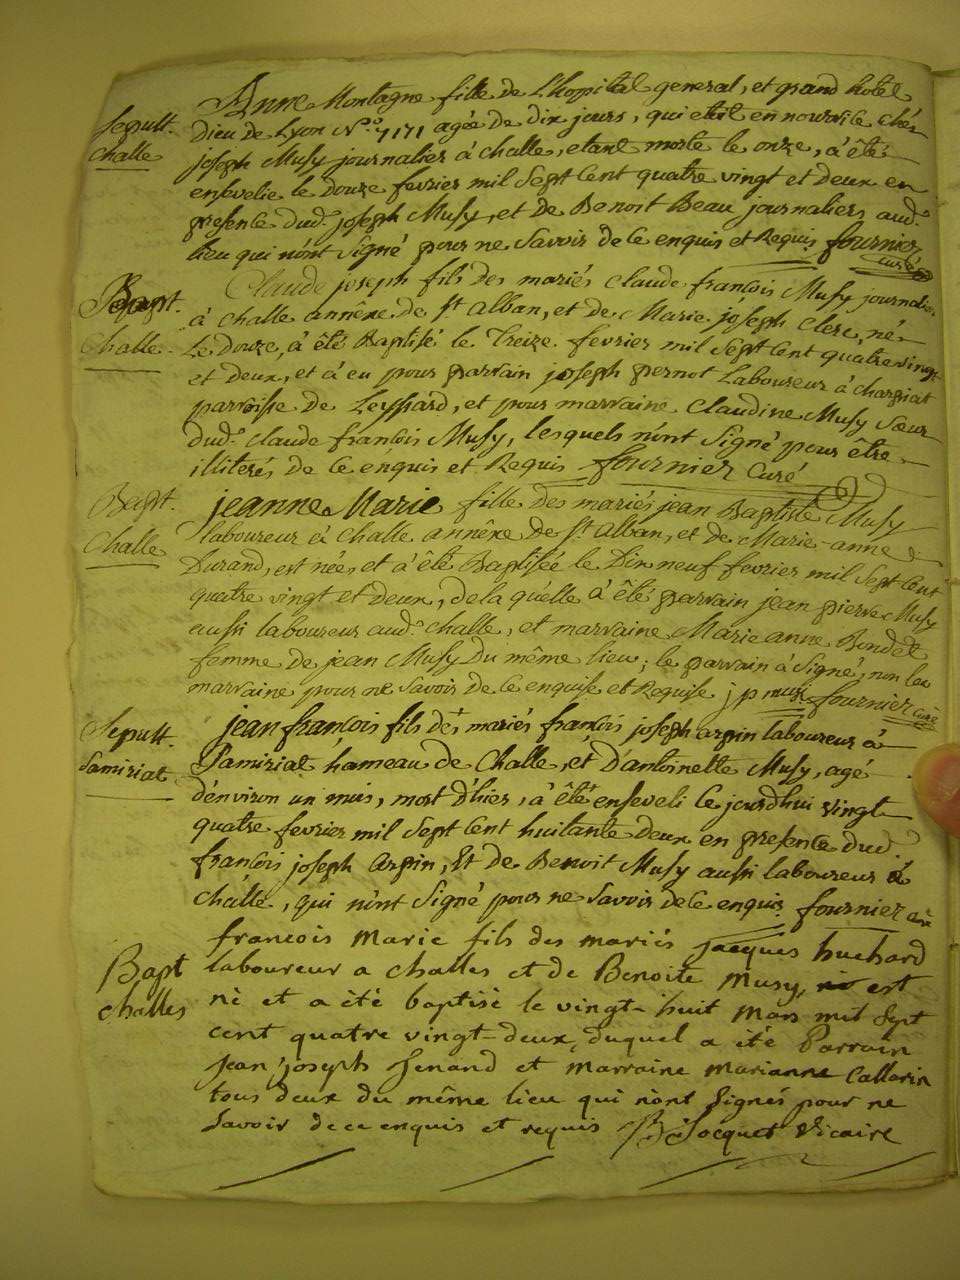 Anne Montagne fille de L'hopital general, et grand hotel
Sepult.
Dieu de Lyon N.o 7171 agée de dix jours, qui etoit en nourrice chés
Challe
joseph Musy journalier à challe, etant morte le onze, à été
ensevelie le douze fevrier mil sept cent quatre vingt et deux en
presence dud. joseph Musy, et de Benoit Beau journaliers aud.
lieu qui n'ont signé pour ne savoir de ce enquis et Requis fournier
curé
Claude joseph fils des mariés claude françois Musy journalier
Bapt.
à challe annêxe de St alban, et de Marie joseph clerc, né
Challe
Le douze, à été Baptisé le treize fevrier mil sept cent quatre vingt
et deux, et à eu pour parrain joseph pernot Laboureur à chargiat
parroisse de Leyssard, et pour marraine claudine Musy sœur
dud. claude françois Musy, lesquels n'ont signé pour être
illiterés de ce enquis et Requis fournier curé
Bapt.
jeanne Marie fille des mariés jean Baptiste Musy
Challe
laboureur à challe annêxe de St alban, et de Marie-anne
Durand, est née, et à été Baptisée le Dix neuf fevrier mil sept cent
quatre vingt et deux, de la quélle à été parrain jean pierre Musy
aussi laboureur aud. challe, et marraine Marie anne Bondet
femme de jean Musy du même lieu; le parrain à signé, non la
marraine pour ne savoir de ce enquise et Requise j p musi fournier curé
Sepult.
jean françois fils dés mariés françois joseph arpin laboureur à
Samiriat
Samiriat hameau de challe, et d'antoinette Musy, agé
d'environ un mois, mort d'hier, à été enseveli ce jourdhui vingt
quatre fevrier mil sept cent huitante deux en presence dud.
françois joseph arpin, Et de Benoit Musy aussi laboureur à
challe, qui n'ont signé pour ne savoir de ce enquis fournier curé
francois Marie fils des mariés jacques huchard
Bapt
laboureur a challes et de Benoite Musy, est
challes
né et a été baptisé le vingt-huit Mars mil sept
cent quatre vingt-deux, duquel a été Parrain
jean joseph Jenand et marraine Marianne Callarin
tous deux du même lieu qui n'ont signés pour ne
savoir de ce enquis et requis B Jocquet Vicaire